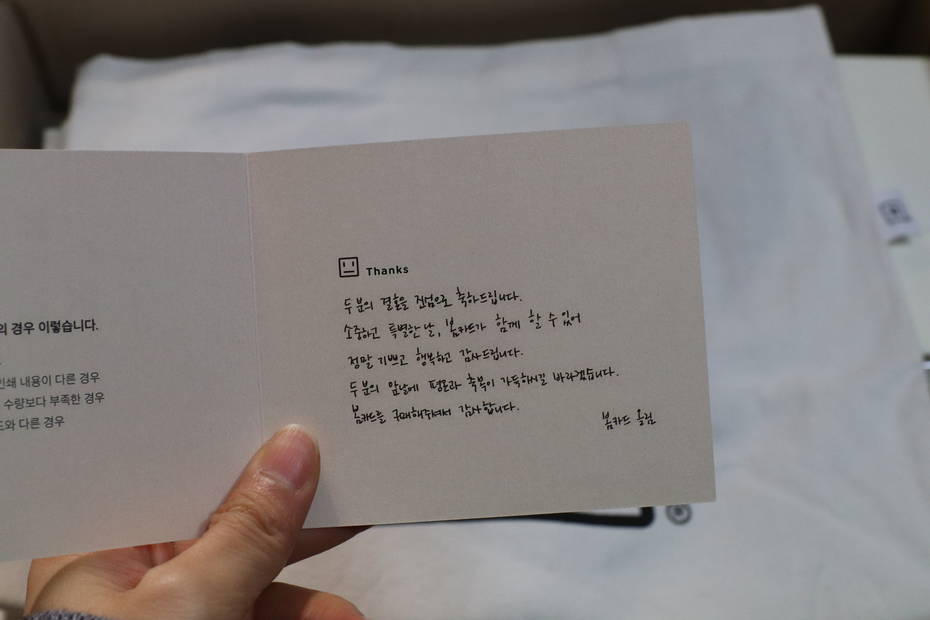 의 경우 이렇습니다.
인쇄 내용이 다른 경우
수량보다 부족한 경우
드와 다른 경우
Thanks
두 분의 결혼을 진심으로 축하드립니다.
소중하고 특별한 날, 봄카드가 함께 할 수 있어
정말 기쁘고 행복하고 감사드립니다.
두 분의 앞날에 평온과 축복이 가득하시길 바라겠습니다.
봄카드를 구매해주셔서 감사합니다.
봄카드 올림